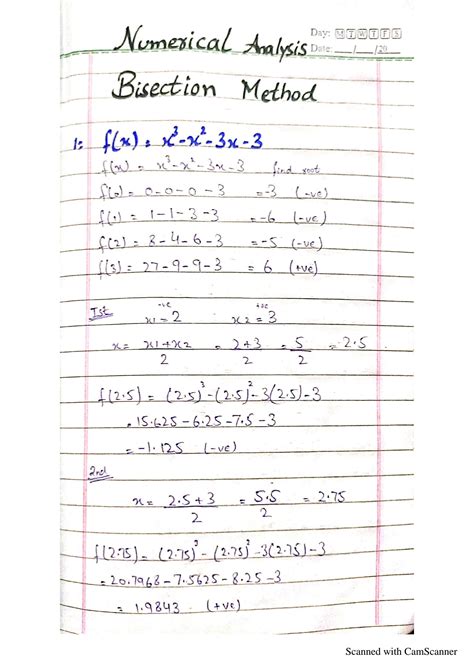 Numerical Analysis Day: M T W T F S
Date: __/__/20__
Bisection Method
1: f(x) = x³-x²-3x-3
f(x) = x³-x²-3x-3 find root
f(0) = 0-0-0-3 = -3 (-ve)
f(1) = 1-1-3-3 = -6 (-ve)
f(2) = 8-4-6-3 = -5 (-ve)
f(3) = 27-9-9-3 = 6 (+ve)
-ve +ve
Ist x1=2 x2=3
x= x1+x2/2 = 2+3/2 = 5/2 = 2.5
f(2.5) = (2.5)³-(2.5)²-3(2.5)-3
= 15.625-6.25-7.5-3
= -1.125 (-ve)
2nd
x= 2.5+3/2 = 5.5/2 = 2.75
f(2.75) = (2.75)³-(2.75)²-3(2.75)-3
= 20.7968-7.5625-8.25-3
= 1.9843 (+ve)
Scanned with CamScanner